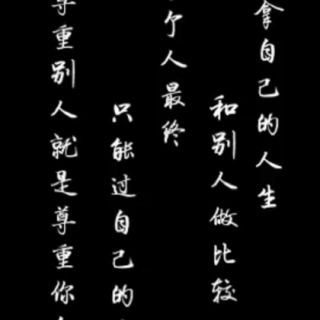 拿自己的人生
和别人做比较
个人最终
只能过自己的
尊重别人就是尊重你